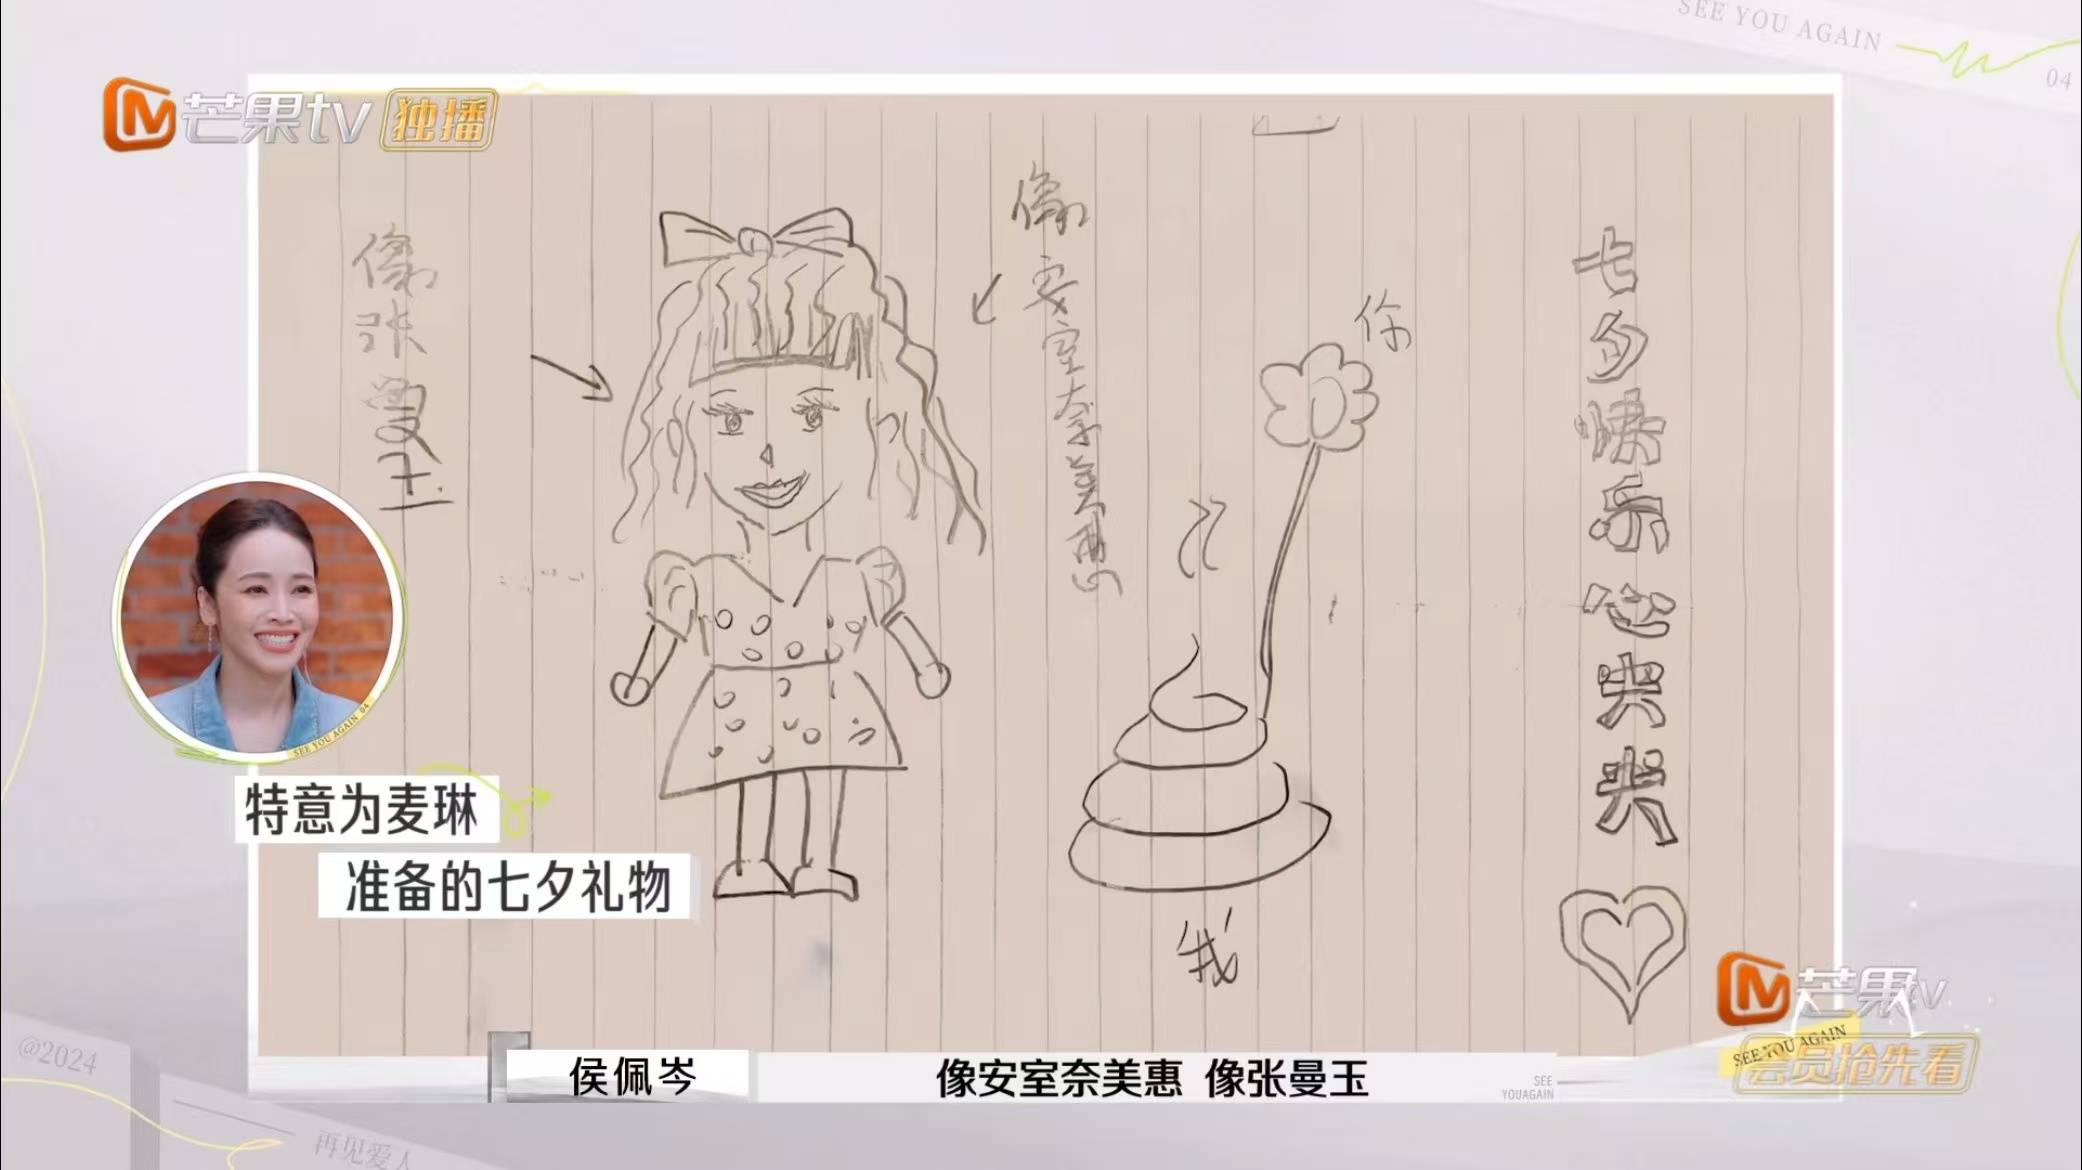 SEE YOU AGAIN
04
芒果tv 独播
像张曼玉
像安室奈美惠
你
我
七夕快乐
SEE YOU AGAIN 04
特意为麦琳
准备的七夕礼物
芒果tv
SEE YOU AGAIN
会员抢先看
@2024
再见爱人
侯佩岑
像安室奈美惠 像张曼玉
SEE
YOUAGAIN